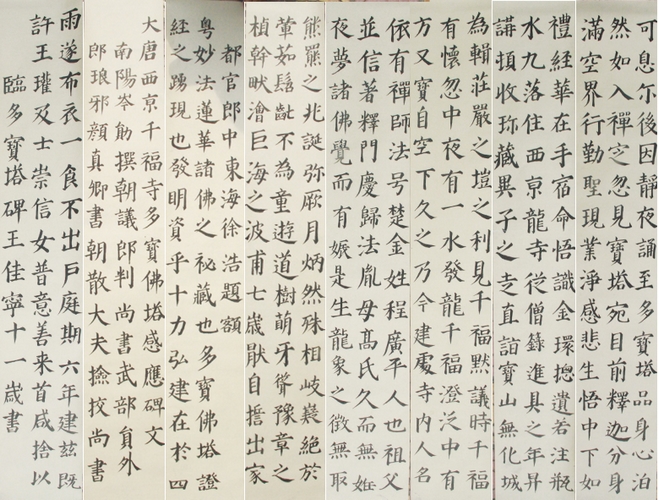 可息尔後因靜夜誦至多寶塔品身心泊
然如入禪定忽見寶塔宛目前釋迦分身
滿空界行勤聖現業淨感悲生悟中下如
禮經華在手宿命悟識金環揔遺若注瓶
水九落住西京龍寺從僧籙進具之年升
講頂收珎藏異子之寺直詣寶山無化城
為輯莊嚴之塏之利見千福默議時千福
有懷忽中夜有一水發龍千福澄泛中有
方又寶自空下久之乃今建處寺内人名
依有禪師法号楚金姓程廣平人也祖父
並信著釋門慶歸法胤母髙氏久而無姙
夜夢諸佛覺而有娠是生龍象之徵無取
熊羆之兆誕弥厥月炳然殊相岐嶷絕於
葷茹髫齔不為童遊道樹萌牙聳豫章之
楨幹畎澮巨海之波甫七歲猒自誓出家
都官郎中東海徐浩題額
粵妙法蓮華諸佛之秘藏也多寶佛塔證
經之踴現也發明資乎十力弘建在於四
大唐西京千福寺多寶佛塔感應碑文
南陽岑勛撰朝議郎判尚書武部貟外
郎琅邪顏真卿書朝散大夫撿挍尚書
雨遂布衣一食不出戶庭期六年建茲既
許王瓘及士崇信女普意善来首咸捨以
臨多寶塔碑王佳寧十一歲書